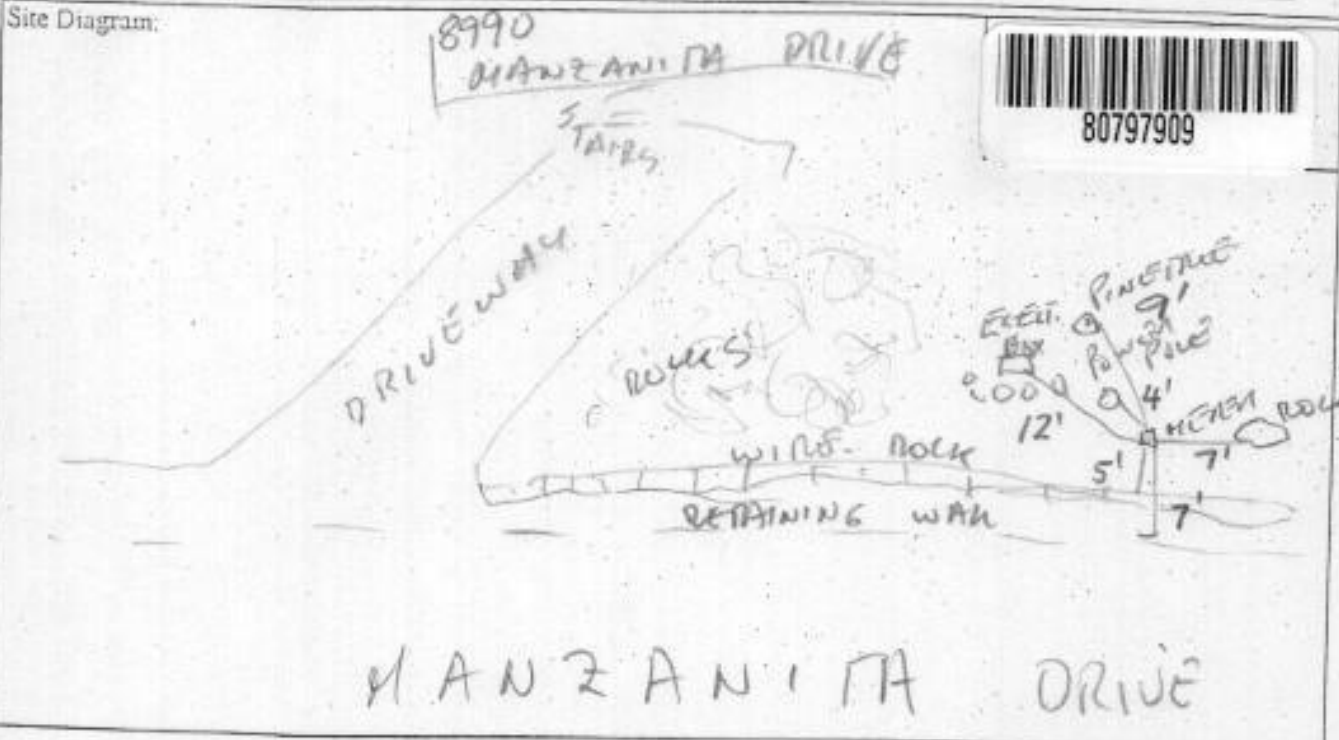 Site Diagram:
8990
MANZANITA DRIVE
80797909
STAIRS
DRIVEWAY
ROCKS
ELECT.
BOX
PINETREE
9'
POWER
POLE
4'
12'
METER
ROCK
7'
5'
7'
WIRE- ROCK
RETAINING WALL
MANZANITA DRIVE